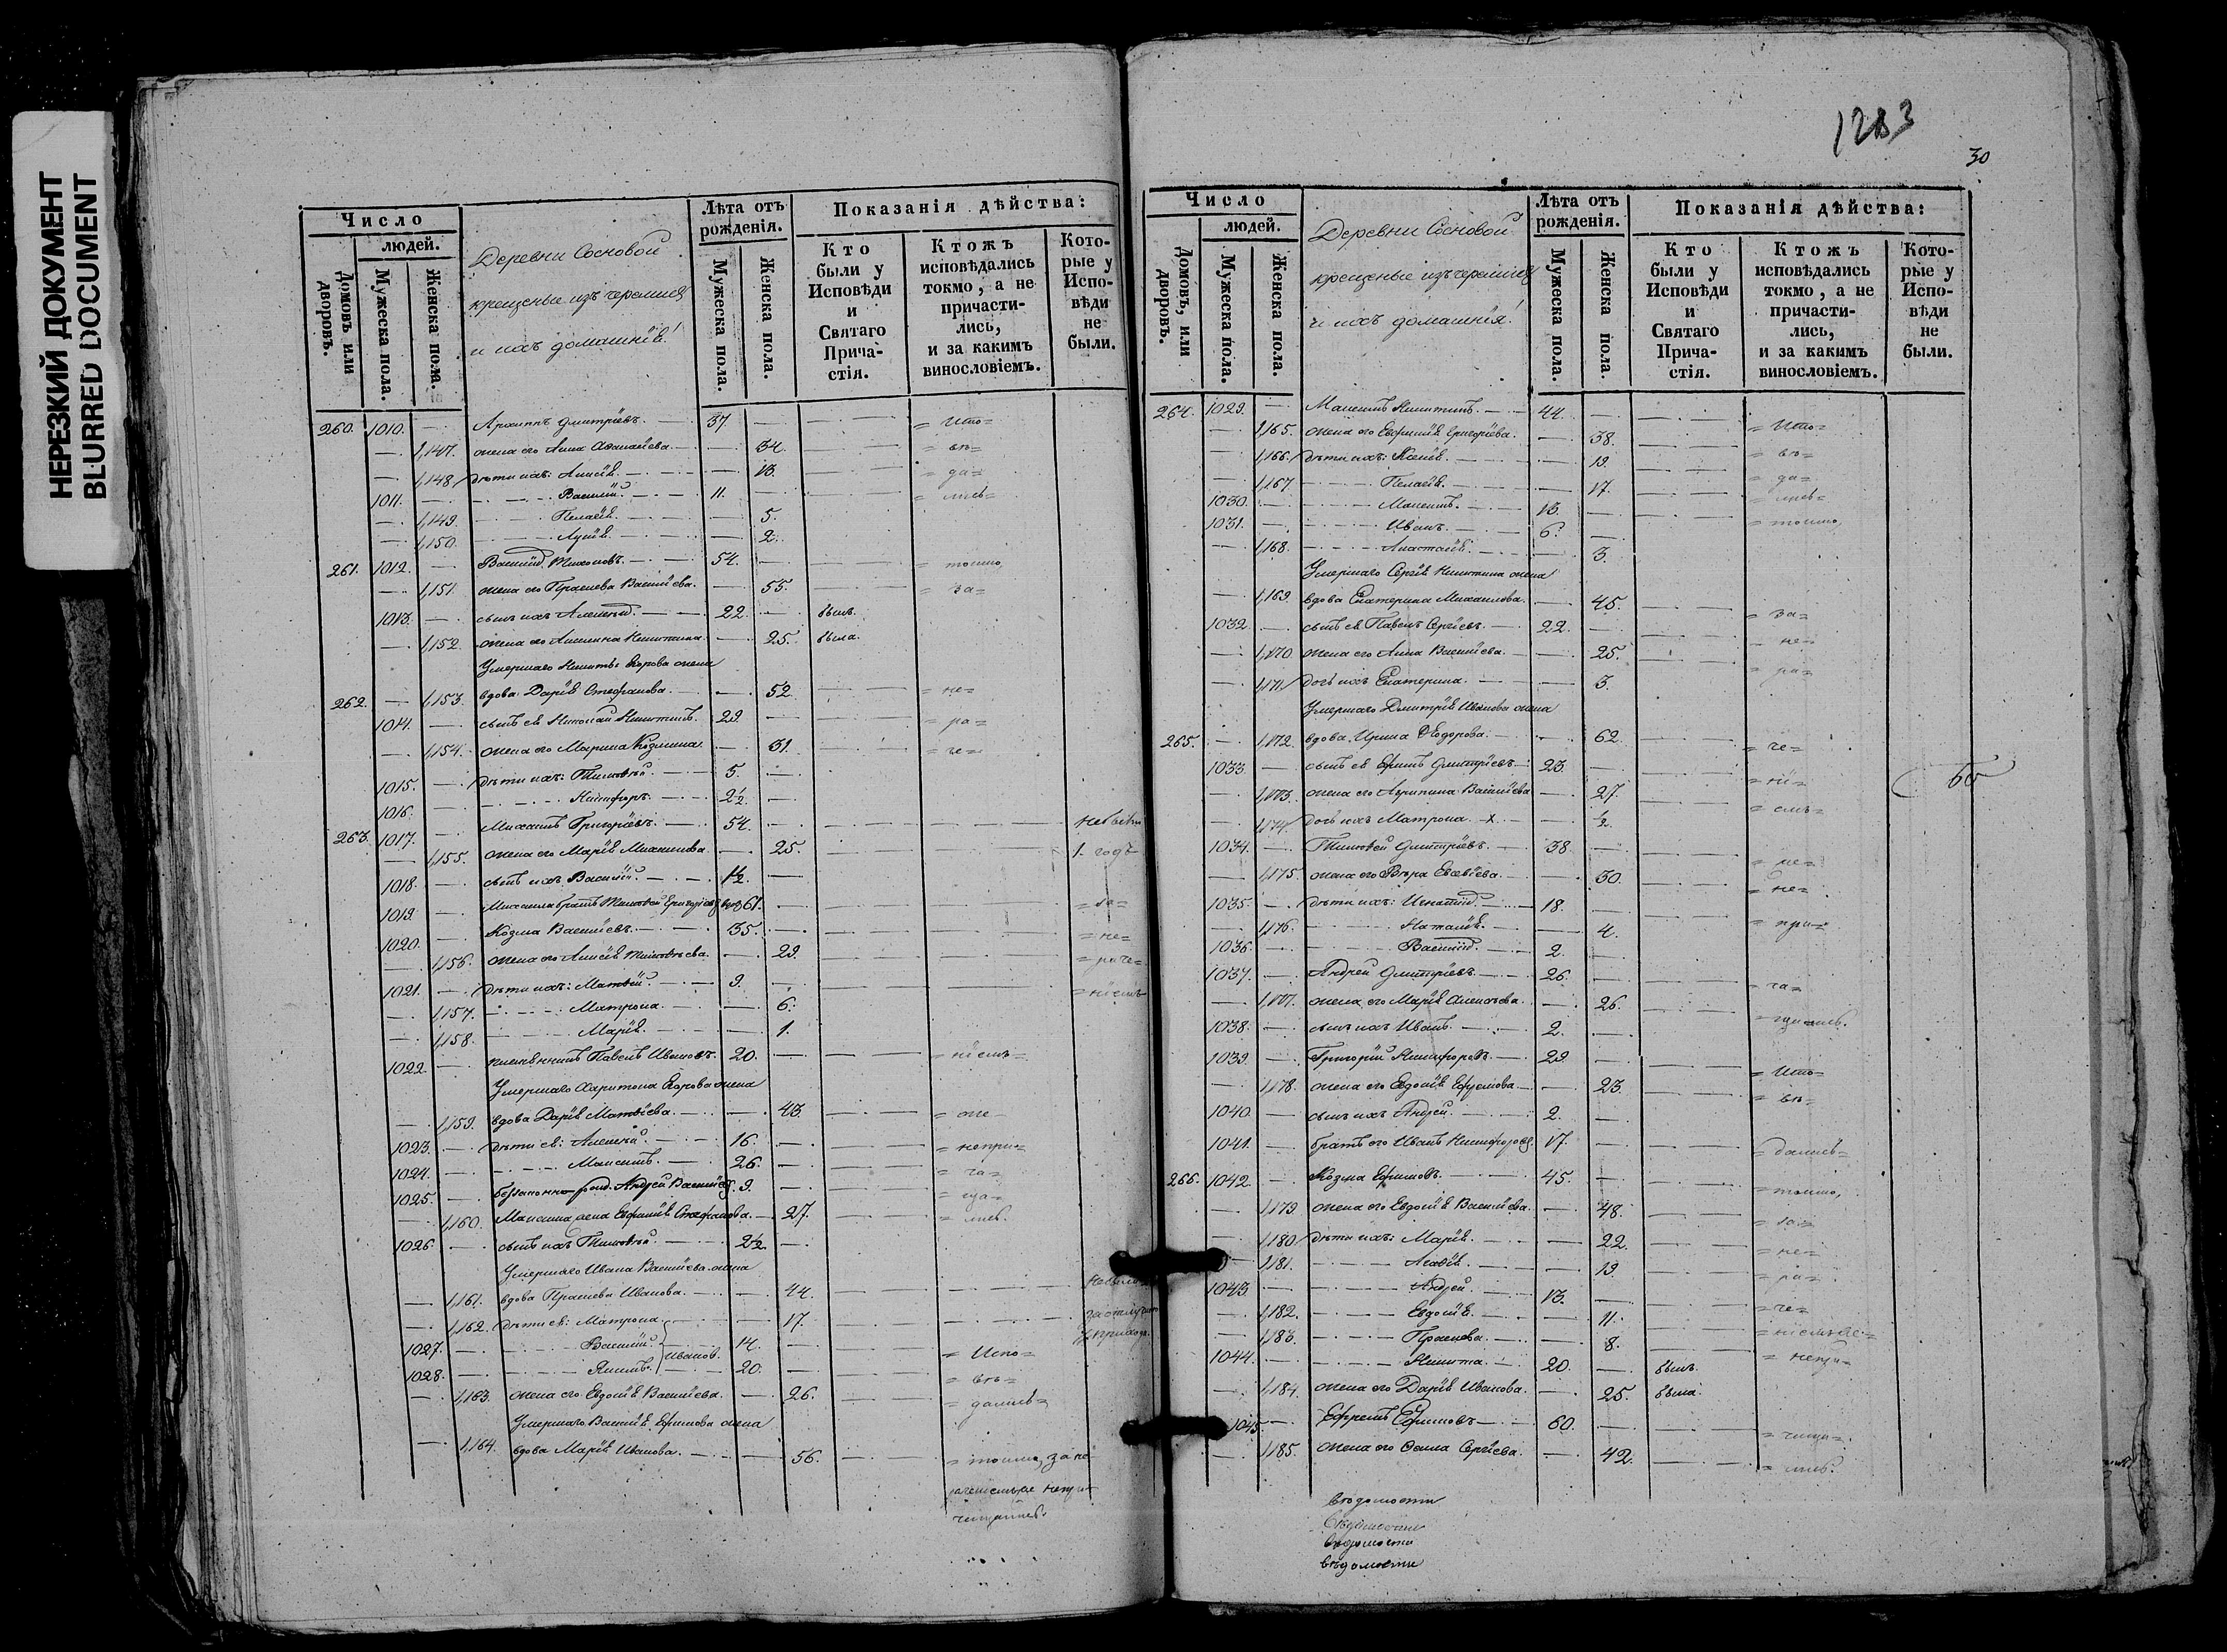 НЕРЕЗКИЙ ДОКУМЕНТ
BLURRED DOCUMENT
Число
людей.
Домовъ или дворовъ.
Мужеска пола.
Женска пола.
Деревни Сосновой
крещеные изъ черемисъ
и ихъ домашнія!
Лѣта отъ рожденія.
Мужеска пола.
Женска пола.
Показанія дѣйства:
Кто были у Исповѣди и Святаго Прича-стія.
Ктожъ исповѣдались токмо, а не причасти-лись, и за какимъ винословіемъ.
Кото-рые у Испо-вѣди не были.
260. 1010. Архиппъ Дмитріевъ. 37. = Испо=
1,147. жена его Анна Аѳанасіева. 34. = вѣ=
1,148. дѣти ихъ: Анисія. 13. = да=
1011. Василій. 11. = лись=
1,149. Пелагія. 5.
1,150. 2.
261. 1012. Василій Тихоновъ. 54. = токмо,
1,151. жена его Прасковья Васильева. 55. = за=
1013. сынъ ихъ Алексѣй. 22. былъ.
1,152. жена его Никитина. 25. была.
Умершаго Никиты Егорова жена
262. 1,153. вдова Дарія Стефанова. 52. = не=
1014. сынъ ея Николай Никитинъ. 29. = ра=
1,154. жена его Марина Козмина. 31. = че=
1015. дѣти ихъ: Тимоѳей. 5.
1016. Никифоръ. 2½.
263. 1017. Михаилъ Григорьевъ. 54. небыли
1,155. жена его Марія Михаилова. 25. 1. годъ
1018. сынъ ихъ Василій. 1½.
1019. Михаила братъ Тимоѳей Григорьевъ 61. = за=
1020. Козма Васильевъ. 35. = не=
1,156. жена его Анисія Тимоѳеева. 29. = раче=
1021. дѣти ихъ: Матвѣй. 9. = ніемъ
1,157. Матрона. 6.
1,158. Марія. 1.
1022. племянникъ Павелъ Ивановъ. 20. = ніемъ=
Умершаго Харитона Егорова жена
1,159. вдова Дарія Матвѣева. 43.
1023. дѣти ея: Алексѣй. 16. = непри=
1024. Максимъ. 26. = ча=
1025. Андрей 9. = ща=
1,160. Максима жена Евфимія Стефанова. 27. = лись.
1026. сынъ ихъ Тимоѳей. 2½.
Умершаго Ивана Васильева жена
1,161. вдова Прасковья Иванова. 44. небыли
1,162. дѣти ея: Матрона. 17.
1027. Василій. Ивановы. 14. = Испо=
1028. Якимъ. 20. = вѣ=
1,163. жена его Евдокія Васильева. 26. = дались=
Умершаго Василія Ефимова жена
1,164. вдова Марія Иванова. 56. = токмо, за не
1283
30
Число
людей.
Домовъ, или дворовъ.
Мужеска пола.
Женска пола.
Деревни Сосновой
крещеные изъ черемисъ
и ихъ домашнія!
Лѣта отъ рожденія.
Мужеска пола.
Женска пола.
Показанія дѣйства:
Кто были у Исповѣди и Святаго Прича-стія.
Ктожъ исповѣдались токмо, а не причасти-лись, и за какимъ винословіемъ.
Кото-рые у Испо-вѣди не были.
264. 1029. Максимъ Никитинъ. 44. = Испо=
1,165. жена его Евфимія Григорьева. 38. = вѣ=
1,166. дѣти ихъ: Ксенія. 19. = да=
1,167. Пелагія. 17. = лись=
1030. Максимъ. 13. = токмо,
1031. Иванъ. 6.
1,168. Анастасія. 3.
Умершаго Сергія Никитина жена
1,169. вдова Екатерина Михаилова. 45. = за=
1032. сынъ ея Павелъ Сергіевъ. 22. = не=
1,170. жена его Анна Васильева. 25. = ра=
1,171. дочь ихъ Екатерина. 3.
Умершаго Димитрія Иванова жена
265. 1,172. вдова Ирина Ѳеодорова. 62. = че=
1033. сынъ ея Дмитріевъ. 23. = ні=
1,173. жена его Агрипина Васильева 27. = емъ=
1,174. дочь ихъ Матрона. х. ½.
1034. Тимоѳей Дмитріевъ. 38.
1,175. жена его Вѣра 30. = не=
1035. дѣти ихъ: Игнатій. 18. = при=
1,176. Наталія. 4.
1036. Василій. 2.
1037. Андрей Дмитріевъ. 26. = ча=
1,177. жена его Марія Алексѣева. 26. = щались.
1038. сынъ ихъ Иванъ. 2.
1039. Григорій Никифоровъ. 29. = Испо=
1,178. жена его Евдокія Ефремова. 23. = вѣ=
1040. сынъ ихъ Андрей. 2.
1041. братъ его Иванъ Никифоровъ. 17. = дались=
266. 1042. Козма Ефимовъ. 45. = токмо,
1,179. жена его Евдокія Васильева. 48. = за=
1,180. дѣти ихъ: Марія. 22. = не=
1,181. 19. = ра=
1043. Андрей. 13. = че=
1,182. Евдокія. 11.
1,183. Прасковья. 8.
1044. Никита. 20. былъ.
1,184. жена его Дарія Иванова. 25. была.
1045. Ефремъ Ефимовъ. 60.
1,185. жена его Сергіева. 42. = лись.
вѣдомости
вѣдомости
вѣдомости